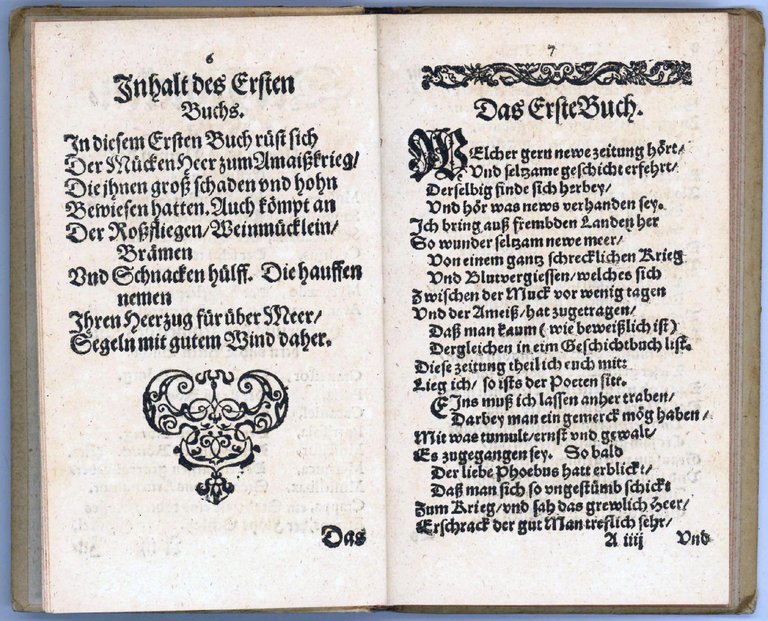 6
Inhalt des Ersten
Buchs.
In diesem Ersten Buch rüst sich
Der Mücken Heer zum Amaißkrieg/
Die jhnen groß schaden vnd hohn
Bewiesen hatten. Auch kömpt an
Der Roßfliegen/ Weinmücklein/
Brämen
Vnd Schnacken hülff. Die hauffen
nemen
Ihren Heerzug für über Meer/
Segeln mit gutem Wind daher.
Das
7
Das Erste Buch.
WElcher gern newe zeitung hört/
Vnd seltzame geschicht erfehrt/
Derselbig finde sich herbey/
Vnd hör was news verhanden sey.
Ich bring auß frembden Landen her
So wunder seltzam newe meer/
Von einem gantz schrecklichen Krieg
Vnd Blutvergiessen/ welches sich
Zwischen der Muck vor wenig tagen
Vnd der Ameiß/ hat zugetragen/
Daß man kaum (wie beweißlich ist)
Dergleichen in eim Geschichtbuch list.
Diese zeitung theil ich euch mit:
Lieg ich/ so ists der Poeten sitt.
EIns muß ich lassen anher traben/
Darbey man ein gemerck mög haben/
Mit was tumult/ ernst vnd gewalt/
Es zugegangen sey. So bald
Der liebe Phoebus hatt erblickt/
Daß man sich so vngestümb schickt
Zum Krieg/ vnd sah das grewlich Heer/
Erschrack der gut Man treflich sehr/
A iiij Vnd